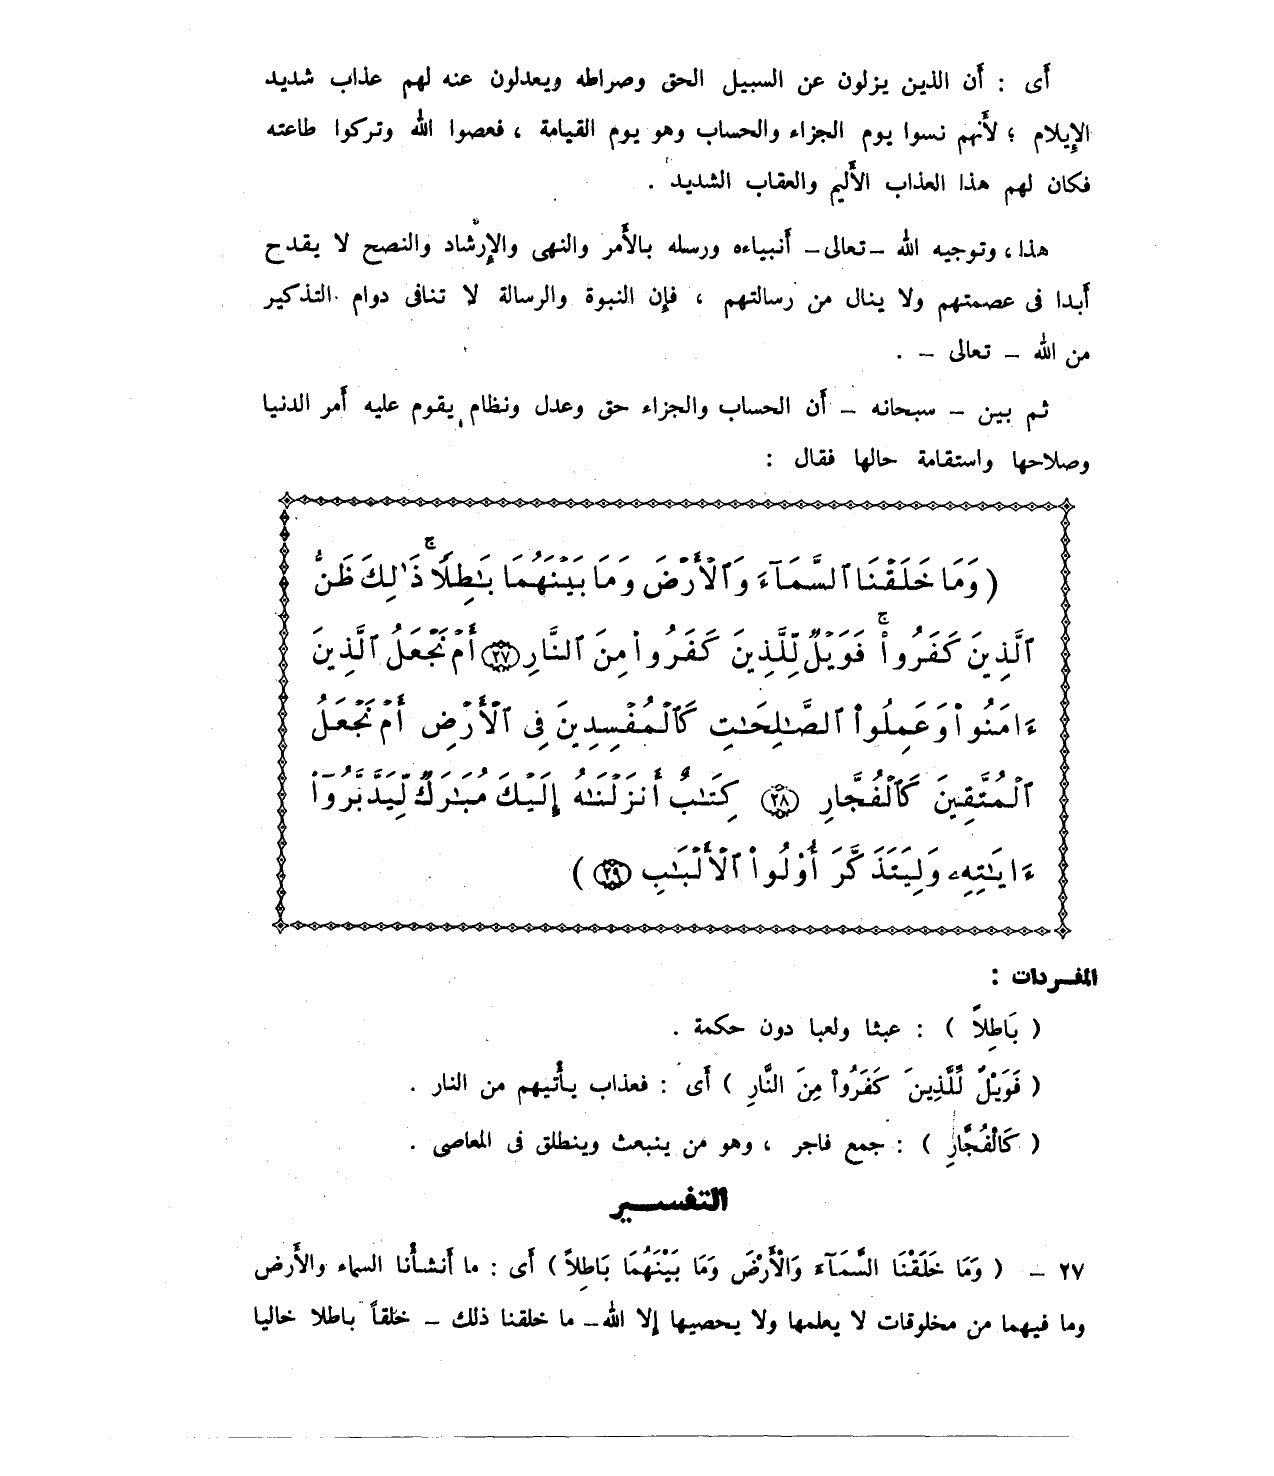 أى : أن الذين يزلون عن السبيل الحق وصراطه ويعدلون عنه لهم عذاب شديد
الإيلام ؛ لأنهم نسوا يوم الجزاء والحساب وهو يوم القيامة ، فعصوا الله وتركوا طاعته
فكان لهم هذا العذاب الأليم والعقاب الشديد .
هذا ، وتوجيه الله –تعالى– أنبياءه ورسله بالأمر والنهى والإرشاد والنصح لا يقدح
أبدا فى عصمتهم ولا ينال من رسالتهم ، فإن النبوة والرسالة لا تنافى دوام التذكير
من الله – تعالى – .
ثم بين – سبحانه – أن الحساب والجزاء حق وعدل ونظام يقوم عليه أمر الدنيا
وصلاحها واستقامة حالها فقال :
( وَمَا خَلَقْنَا ٱلسَّمَآءَ وَٱلْأَرْضَ وَمَا بَيْنَهُمَا بَٰطِلًا ۚ ذَٰلِكَ ظَنُّ
ٱلَّذِينَ كَفَرُوا۟ ۚ فَوَيْلٌ لِّلَّذِينَ كَفَرُوا۟ مِنَ ٱلنَّارِ ٢٧ أَمْ نَجْعَلُ ٱلَّذِينَ
ءَامَنُوا۟ وَعَمِلُوا۟ ٱلصَّٰلِحَٰتِ كَٱلْمُفْسِدِينَ فِى ٱلْأَرْضِ أَمْ نَجْعَلُ
ٱلْمُتَّقِينَ كَٱلْفُجَّارِ ٢٨ كِتَٰبٌ أَنزَلْنَٰهُ إِلَيْكَ مُبَٰرَكٌ لِّيَدَّبَّرُوٓا۟
ءَايَٰتِهِۦ وَلِيَتَذَكَّرَ أُو۟لُوا۟ ٱلْأَلْبَٰبِ ٢٩ )
المفـردات :
( بَاطِلاً ) : عبثا ولعبا دون حكمة .
( فَوَيْلٌ لِّلَّذِينَ كَفَرُواْ مِنَ النَّارِ ) أى : فعذاب يأتيهم من النار .
( كَالْفُجَّارِ ) : جمع فاجر ، وهو من ينبعث وينطلق فى المعاصى .
التفسـير
٢٧ – ( وَمَا خَلَقْنَا السَّمَآءَ وَالْأَرْضَ وَمَا بَيْنَهُمَا بَاطِلاً ) أى : ما أنشأنا السماء والأرض
وما فيهما من مخلوقات لا يعلمها ولا يحصيها إلا الله– ما خلقنا ذلك – خلقاً باطلا خاليا